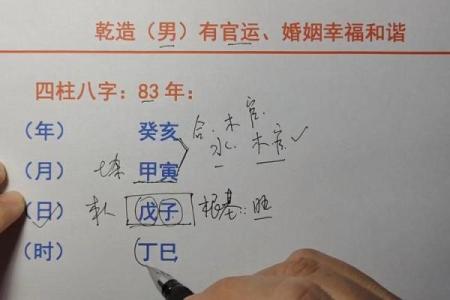 乾造（男）有官运、婚姻幸福和谐
四柱八字：83年：
（年） 癸亥 合：木官
水、木官✓
（月） 甲寅
（日） 本人 戊子 根基：旺
（时） 丁巳